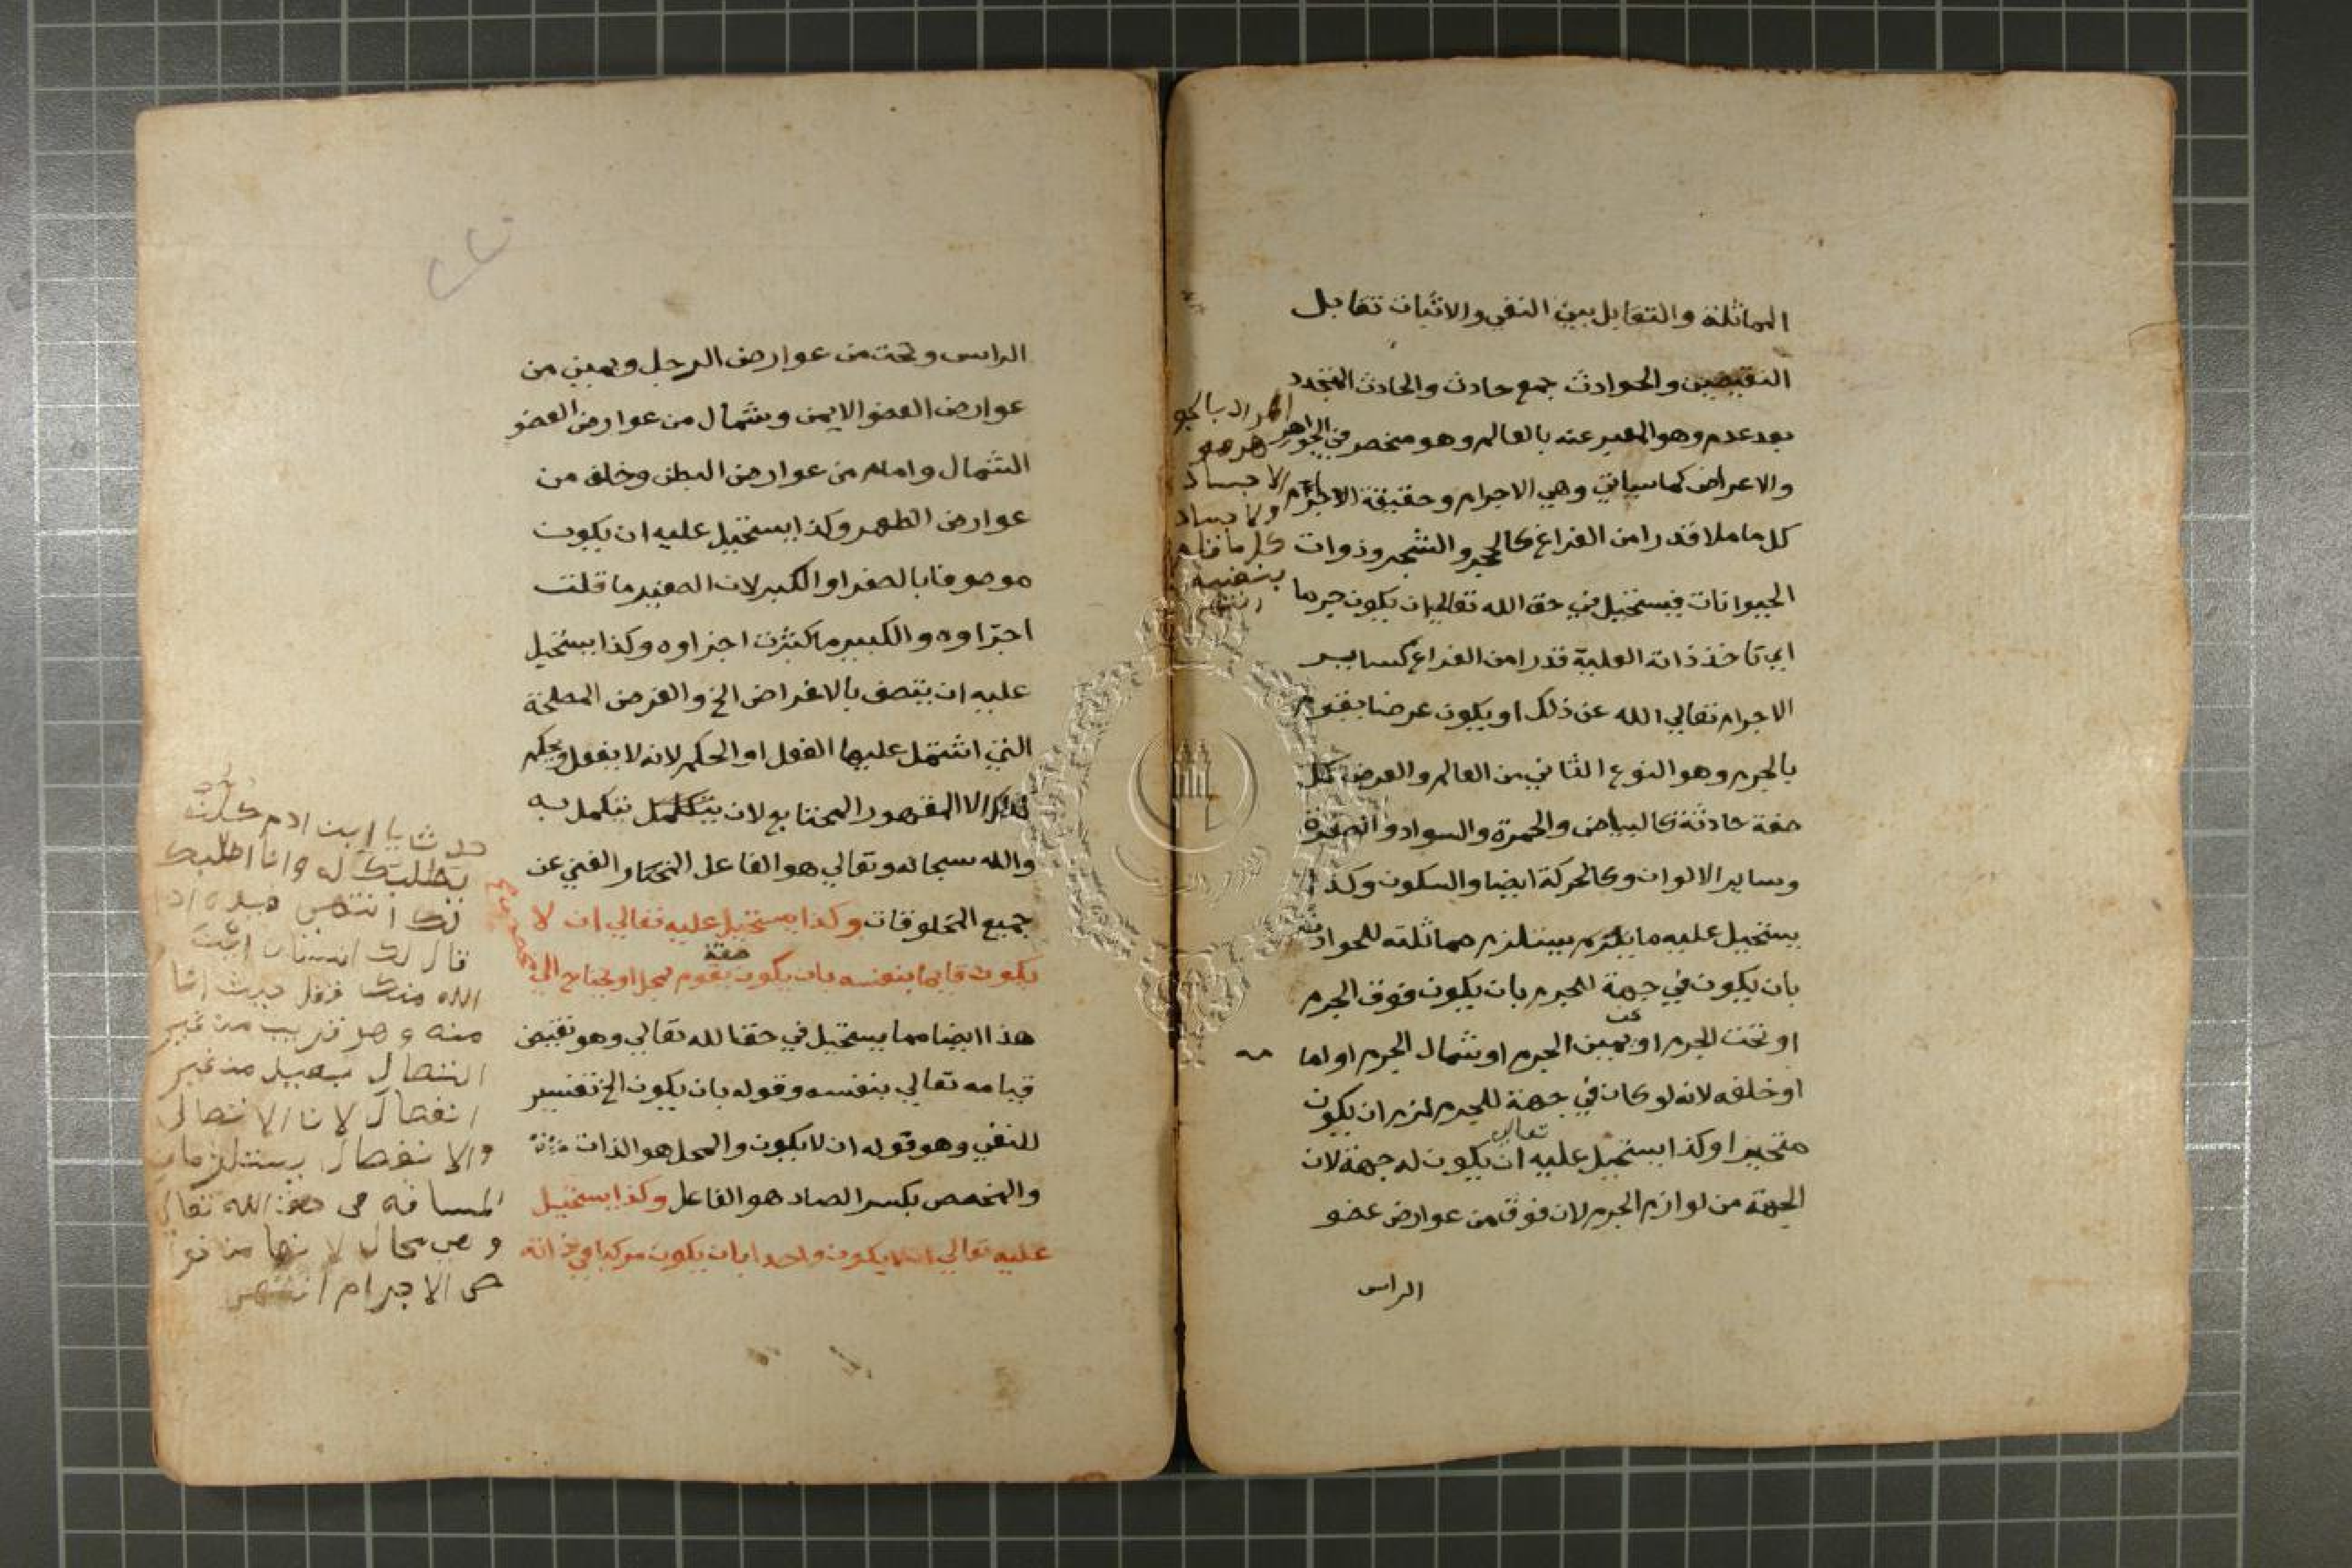 المماثلة والتقابل بين النفي والاثبات تقابل
النقيضين والحوادث جمع حادث والحادث المتجدد
بعد عدم وهو المعبر عنه بالعالم وهو منحصر في الجواهر
والاعراض كما سياتي وهي الاجرام وحقيقة الاجرام
كل ما ملا قدرا من الفراغ كالحجر والشجر وذوات
الحيوانات فيستحيل في حق الله تعالي ان يكون جرما
اي تاخذ ذاته العلية قدرا من الفراغ كساير
الاجرام تعالي الله عن ذلك او يكون عرضا يقوم
بالجرم وهو النوع الثاني من العالم والعرض كل
صفة حادثة كالبياض والحمرة والسواد والصفرة
وساير الالوان وكالحركة ايضا والسكون وكذا
يستحيل عليه ما يلزم يستلزم مماثلته للحوادث
بان يكون في جهة للجرم بان يكون فوق الجرم
او تحت الجرم او يمين الجرم او شمال الجرم او اما
مه
او خلفه لانه لو كان في جهة للجرم لزم ان يكون
متحيزا وكذا يستحيل عليه تعالي ان يكون له جهة لان
الجهة من لوازم الجرم لان فوق من عوارض عضو
الراس
المراد بالجو
هر هو
الاجساد
ولاجساد
كل ما قام
بنفسه
انتهى
الراس وتحت من عوارض الرجل ويمين من
عوارض العضو الايمن وشمال من عوارض العضو
الشمال وامام من عوارض البطن وخلف من
عوارض الظهر وكذا يستحيل عليه ان يكون
موصوفا بالصغر او الكبر لان الصغير ما قلت
اجزاوه والكبير ما كثرت اجزاوه وكذا يستحيل
عليه ان يتصف بالاغراض الخ والغرض المصلحة
التي اشتمل عليها الفعل او الحكم لانه لا يفعل ويحكم
لذلك الا المقهور المحتاج لان يتكمل يتكمل به
والله سبحانه وتعالي هو الفاعل المختار الغني عن
جميع المخلوقات وكذا يستحيل عليه تعالي ان لا
يكون قايما بنفسه بان يكون صفة يقوم بمحل او يحتاج الي
مخصص
هذا ايضا مما يستحيل في حق الله تعالي وهو نقيض
قيامه تعالي بنفسه وقوله بان يكون الخ تفسير
للنفي وهو قوله ان لا يكون والمحل هو الذات
والمخصص بكسر الصاد هو الفاعل وكذا يستحيل
عليه تعالي ان لا يكون واحدا بان يكون مركبا في ذاته
يا ابن ادم
وانا اطلبك
لك انتهى
قال لك انسان اين
الله
منه وهو قريب من غير
اتصال بعيد من غير
انفصال لان الاتصال
والانفصال يستلزمان
المسافه في حق الله تعالي
وهي محال لانها من عوا
رض الاجرام انتهى